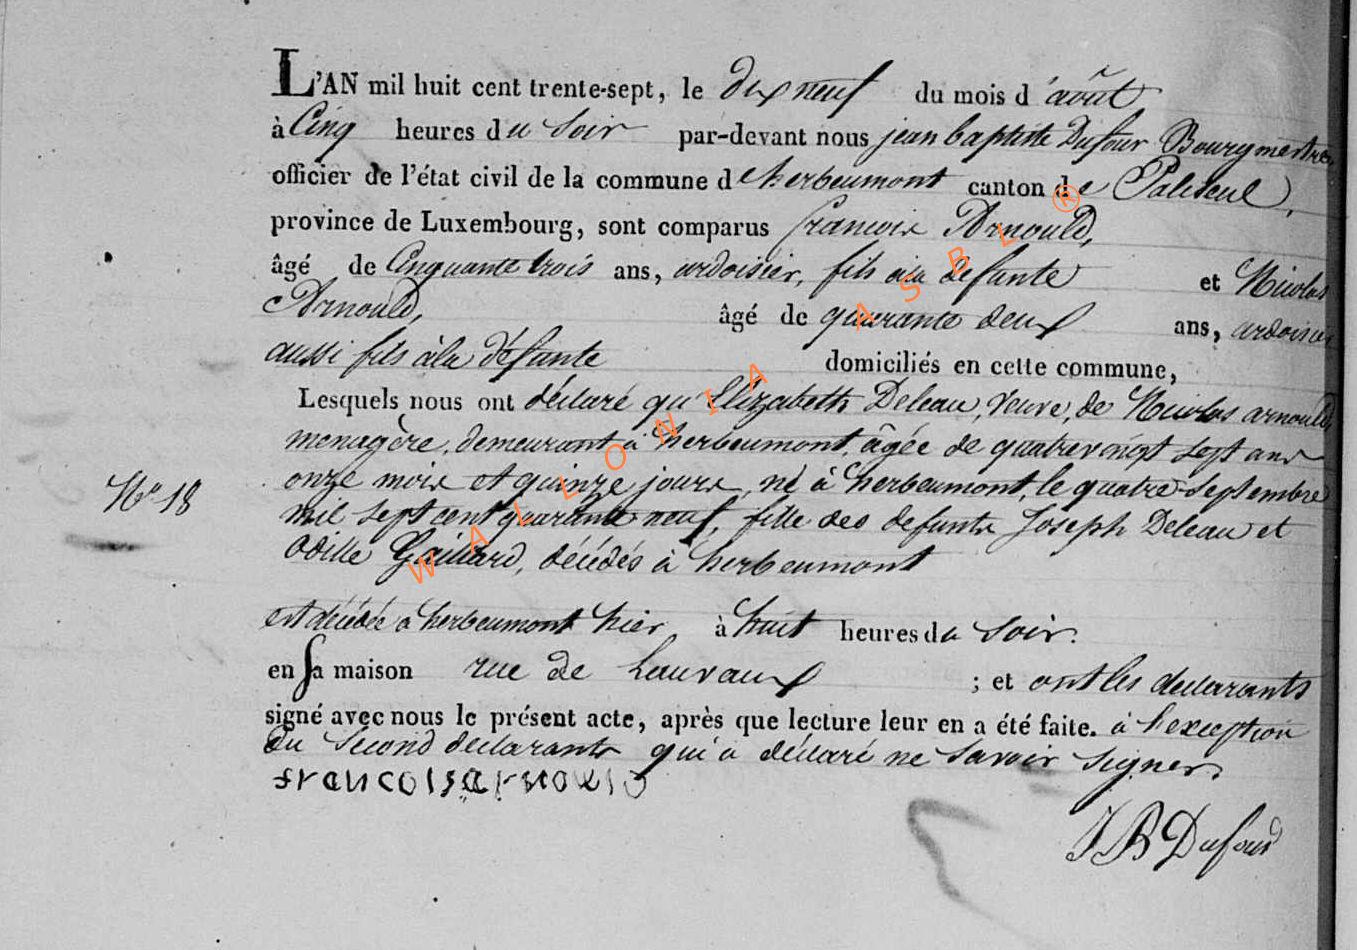 L'AN mil huit cent trente-sept, le dix neuf du mois d'août
à Cinq heures du Soir par-devant nous jean baptiste Dufour Bourgmestre
officier de l'état civil de la commune d'herbeumont canton de Paliseul,
province de Luxembourg, sont comparus francois Arnould,
âgé de Cinquante trois ans, ardoisier, fils àla defunte et Nicolas
Arnould, âgé de quarante deux ans, ardoisier
aussi fils àla défunte domiciliés en cette commune,
Lesquels nous ont déclaré qu'Elizabeth Deleau, veuve, de Nicolas arnould,
menagère, demeurant à herbeumont, âgée de quatrevingt sept ans
N° 18
onze mois et quinze jours, né à herbeumont, le quatre septembre
mil sept cent quarante neuf, fille des defunts Joseph Deleau et
Odille Gaillard, décédés à herbeumont
est décédée à herbeumont hier à huit heures du Soir.
en Sa maison rue de Lauvaux ; et ont les declarants
signé avec nous le présent acte, après que lecture leur en a été faite. à l'exception
du Second declarant qui a déclaré ne Savoir Signer.
francoisarnould
J B Dufour
WALLONIA ASBL ®